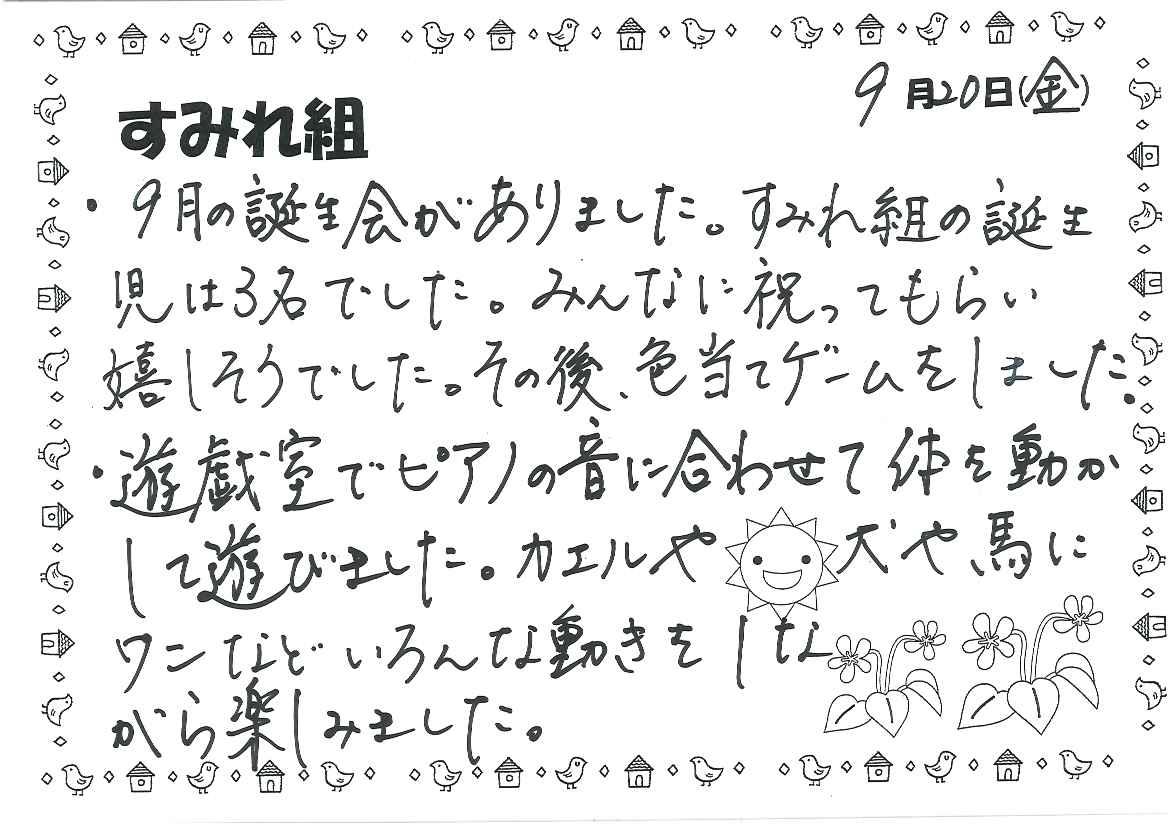 9月20日(金)
すみれ組
・9月の誕生会がありました。すみれ組の誕生
児は3名でした。みんなに祝ってもらい
嬉しそうでした。その後、色当てゲームをしました。
・遊戯室でピアノの音に合わせて体を動か
して遊びました。カエルや犬や、馬に
ワンなどいろんな動きをしな
がら楽しみました。